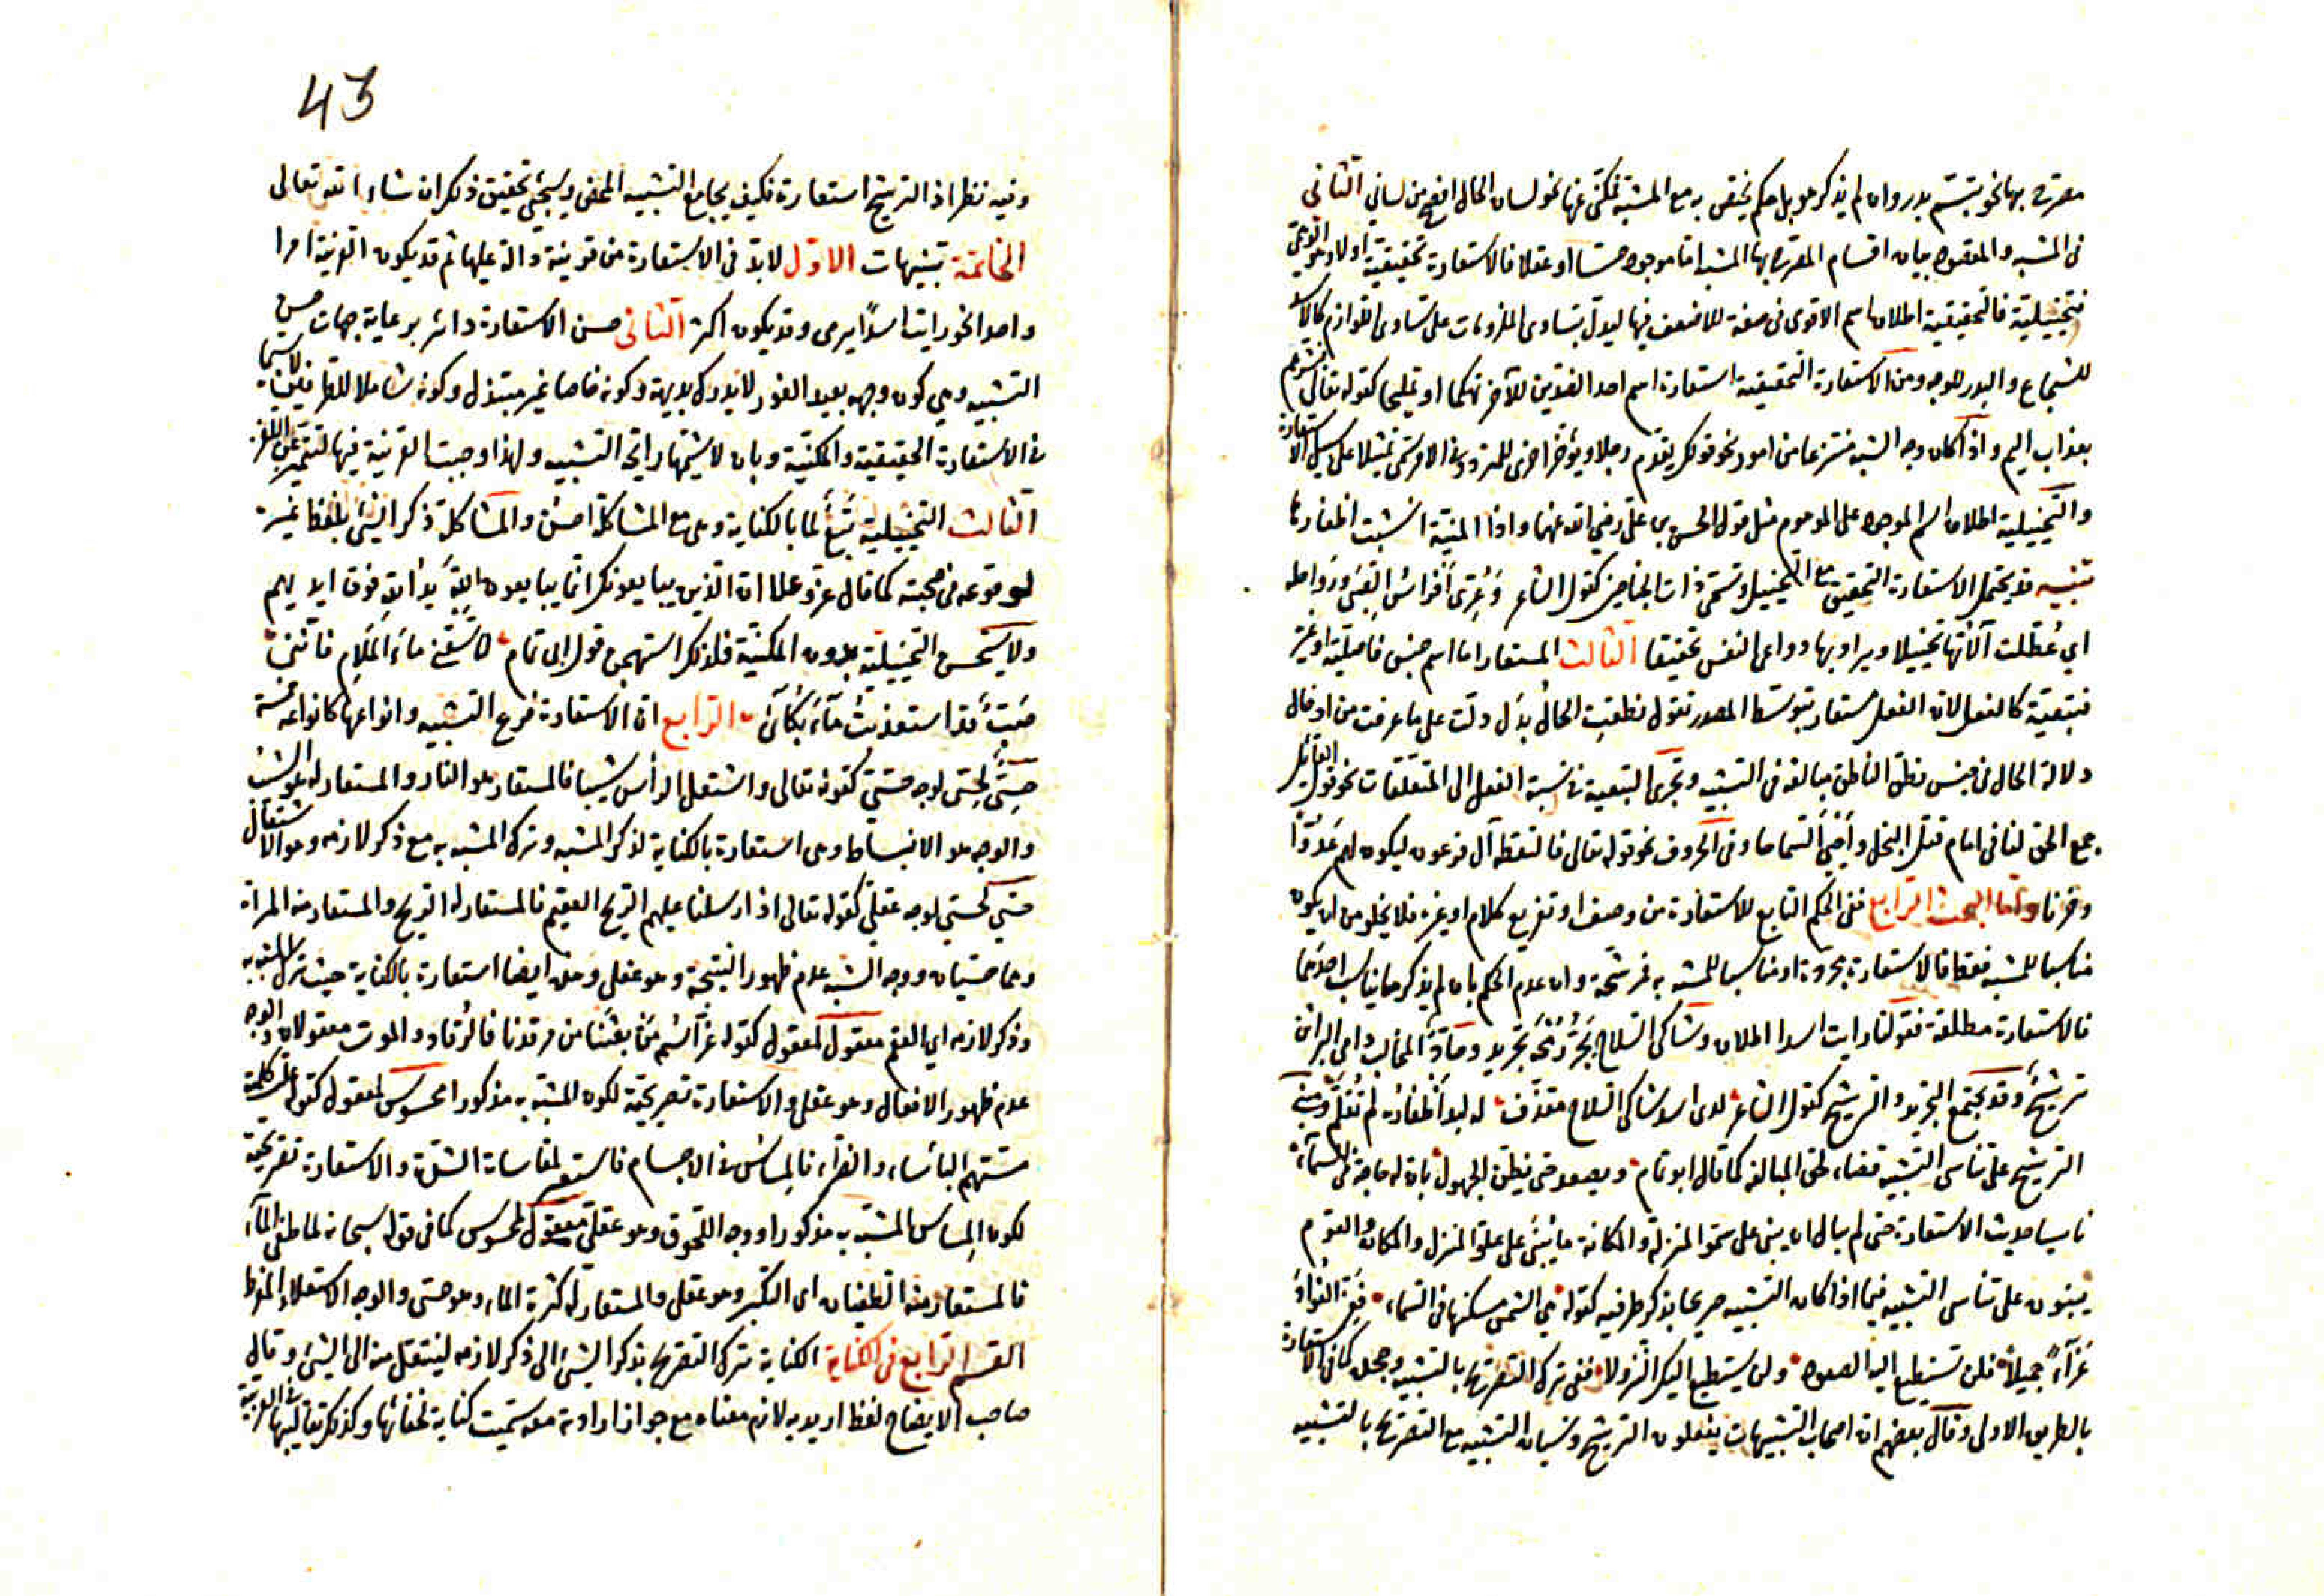 مصرّح بها نحو تبسّم بدر وان لم يذكر هو بل حكم يختص به مع المشبه فمكنى عنها نحو لسان الحال افصح من لساني الثاني
في المشبه والمقصود بيان اقسام المصرح بها المشبه اما موجود حسّا او عقلا فالاستعارة تحقيقية اولا وهو الوهمي
فتخييلية فالتحقيقية اطلاق اسم الاقوى في صفة للاضعف فيها ليدل بتساوى الملزومات على تساوى اللوازم كالاسد
للشجاع والبدر للوجه ومن الاستعارة التحقيقية استعارة اسم احد الضدين للآخر تهكما او تمليحا كقوله تعالى فبشرهم
بعذاب اليم واذا كان وجه الشبه منتزعا من امور نحو قولك يقدم رجلا ويؤخر اخرى للمتردد في الامر سمى تمثيلا على سبيل الاستعارة
والتخييلية اطلاق اسم الموجود على الموهوم مثل قول الحسن بن على رضي الله عنهما واذا المنية انشبت اظفارها
تنبيه قد يحتمل الاستعارة التحقيق مع التخييل وتسمى ذات الجناحين كقول الشاعر وَعُرّى أَفراسُ الصبى ورواحله
اي عُطّلت آلاتها تخييلا ويراد بها دواعى النفس تحقيقا الثالث المستعار اما اسم جنس فاصلية او غيره
فتبعية كالفعل لان الفعل مستعار بتوسّط المصدر تقول نطقت الحال بدَل دلت على ما عرفت من ادخال
دلالة الحال في جنس نطق الناطق مبالغة في التشبيه وتجرى التبعية في نسبة الفعل الى المتعلّقات نحو قول القائل
جمع الحق لنا في امام قتل البخل وأحيى السماحا وفي الحروف نحو قوله تعالى فالتقطه آل فرعون ليكون لهم عدوّا
وحزنا واما البحث الرابع ففى الحكم التابع للاستعارة من وصف او تفريع كلام او غيره فلا يخلو من ان يكون
مناسبا للمشبه فقط فالاستعارة مجردة او مناسبا للمشبه به فمرشّحة وان عدم الحكم بان لم يذكر ما يناسب احدهما
فالاستعارة مطلقة فقولنا رايت اسدا اطلاق وشاكى السلاح يَجُرُّ رُمْحَهُ تجريد وحادّ المخالب دامى البراثن
ترشيحٌ وقد يجتمع التجريد والترشيح كقول الشاعر لدى اسد شاكى السلاح مقذّف له لبد أظفاره لم تُقلَّم ومبنى
الترشيح على تناسى التشبيه قضاء لحق المبالغة كما قال ابو تمام ويصعد حتى يظن الجهول بان له حاجة في السماء
ناسيا حديث الاستعارة حتى لم يبال ان يبنى على سموّ المنزلة والمكانة ما يُبنى على علوّ المنزل والمكان والقوم
يبنون على تناسى التشبيه فيما اذا كان التشبيه صريحا بذكر طرفيه كقوله هي الشمس مسكنها في السماء فعَزِّ الفؤادَ
عَزآءً جميلاً فلن تستطيع اليها الصعود ولن يستطيع اليك النزولا ففى ترك التصريح بالتشبيه وجعله كما في الاستعارة
بالطريق الاولى وقال بعضهم ان اصحاب التشبيهات يفعلون الترشيح ونسيان التشبيه مع التصريح بالتشبيه
43
وفيه نظر اذ الترشيح استعارة فكيف يجامع التشبيه المحض وسيجئ تحقيق ذلك ان شاء الله تعالى
الخاتمة تنبيهات الاوّل لابد في الاستعارة من قرينة دالة عليها ثم قد يكون القرينة امرا
واحدا نحو رايت اسدًا يرمى وقد يكون اكثر الثانى حسن الاستعارة دائر برعاية جهات حسن
التشبيه وهي كون وجهه بعيد الغور لايدرك بديهة وكونه خاصا غير مبتذل وكونه شاملا للطرفين لاسيما
في الاستعارة الحقيقية والمكنية وبان لا يشمّها رائحة التشبيه ولهذا وجبت القرينة فيها لتتميز عن اللغز
الثالث التخييلية تَبَعٌ لما بالكناية وهى مع المشاكلة احسن والمشاكلة ذكر الشئ بلفظ غيره
لوقوعه في صحبته كما قال عزّ وعلا ان الذين يبايعونك انما يبايعون اللهَ يدُ اللهِ فوق ايديهم
ولا يستحسن التخييلية بدون المكنية فلذلك استهجن قول ابى تمام لا تَسْقِني ماءَ المَلامِ فاننى
صَبٌّ قد استعذبتُ مآءَ بُكآئى الرابع ان الاستعارة فرع التشبيه وانواعها كانواعه خمسة
حسّىٌّ لحسّى لوجه حسّىّ كقوله تعالى واشتعل الرأس شيبا فالمستعار هو النار والمستعار له هو الشيب
والوجه هو الانبساط وهى استعارة بالكناية لذكر المشبه وترك المشبه به مع ذكر لازمه وهو الاشتعال
حسّى لحسّي لوجه عقلىّ كقوله تعالى اذ ارسلنا عليهم الريح العقيم فالمستعار له الريح والمستعار منه المراة
وهما حسّيان ووجه الشبه عدم ظهور النتيجة وهو عقلى وهى ايضا استعارة بالكناية حيث ترك المشبه به
وذكر لازمه اي العقم معقول لمعقول كقوله عزّ اسمه مَنْ بعثَنا من مرقدنا فالرُقاد والموت معقولان والوجه
عدم ظهور الافعال وهو عقلى والاستعارة تصريحية لكون المشبّه به مذكورا محسوس لمعقول كقوله
مستهم الباساء والضراء فالمساسُ في الاجسام فاستعير لمقاسات الشدّة والاستعارة تصريحية
لكون المساس المشبّه به مذكورا ووجه اللحوق وهو عقلىّ معقول لمحسوس كما في قوله سبحانه لما طغى المآء
فالمستعار منه الطغيان اى التكبر وهو عقلى والمستعار له كثرة الماء وهو حسّى والوجه الاستعلاء المفرط
القسم الرابع في الكناية الكناية ترك التصريح بذكر الشئ الى ذكر لازمه لينتقل منه الى الشئ وقال
صاحب الايضاح لفظ اريد به لازم معناه مع جواز ارادته معه سمّيت كناية لخفائها وكذلك تقاليبها في العربية